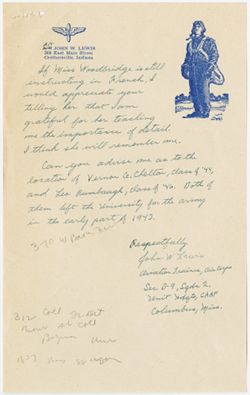 JOHN W. LEWIS
318 East Main Street
Crothersville, Indiana
If Miss Woodbridge is still
instructing in French, I
would appreciate your
telling her that I am
grateful for her teaching
me the importance of detail.
I think she will remember me.
Can you advise me as to the
location of Vernon C. Chelton, class of '44,
and Leo Rumbaugh, class of '40. Both of
them left the University for the army
in the early part of 1942.
Respectfully
John W. Lewis
Aviation Trainee, Air Corps
Sec
Columbus, Miss.
312 Coll